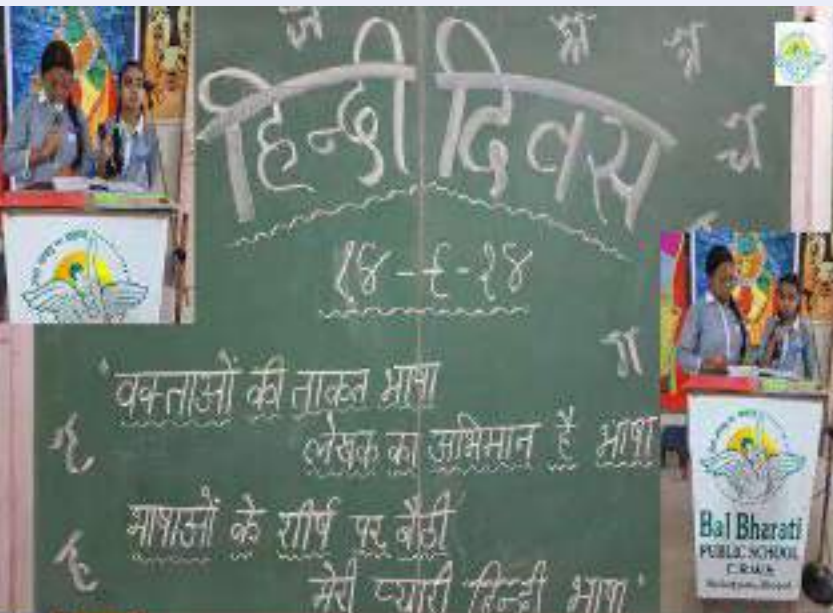 हिन्दी दिवस
१४-९-२४
'वक्ताओं की ताकत भाषा
लेखक का अभिमान है भाषा
भाषाओं के शीर्ष पर बैठी
मेरी प्यारी हिन्दी भाषा'
ग
Bal Bharati
PUBLIC SCHOOL